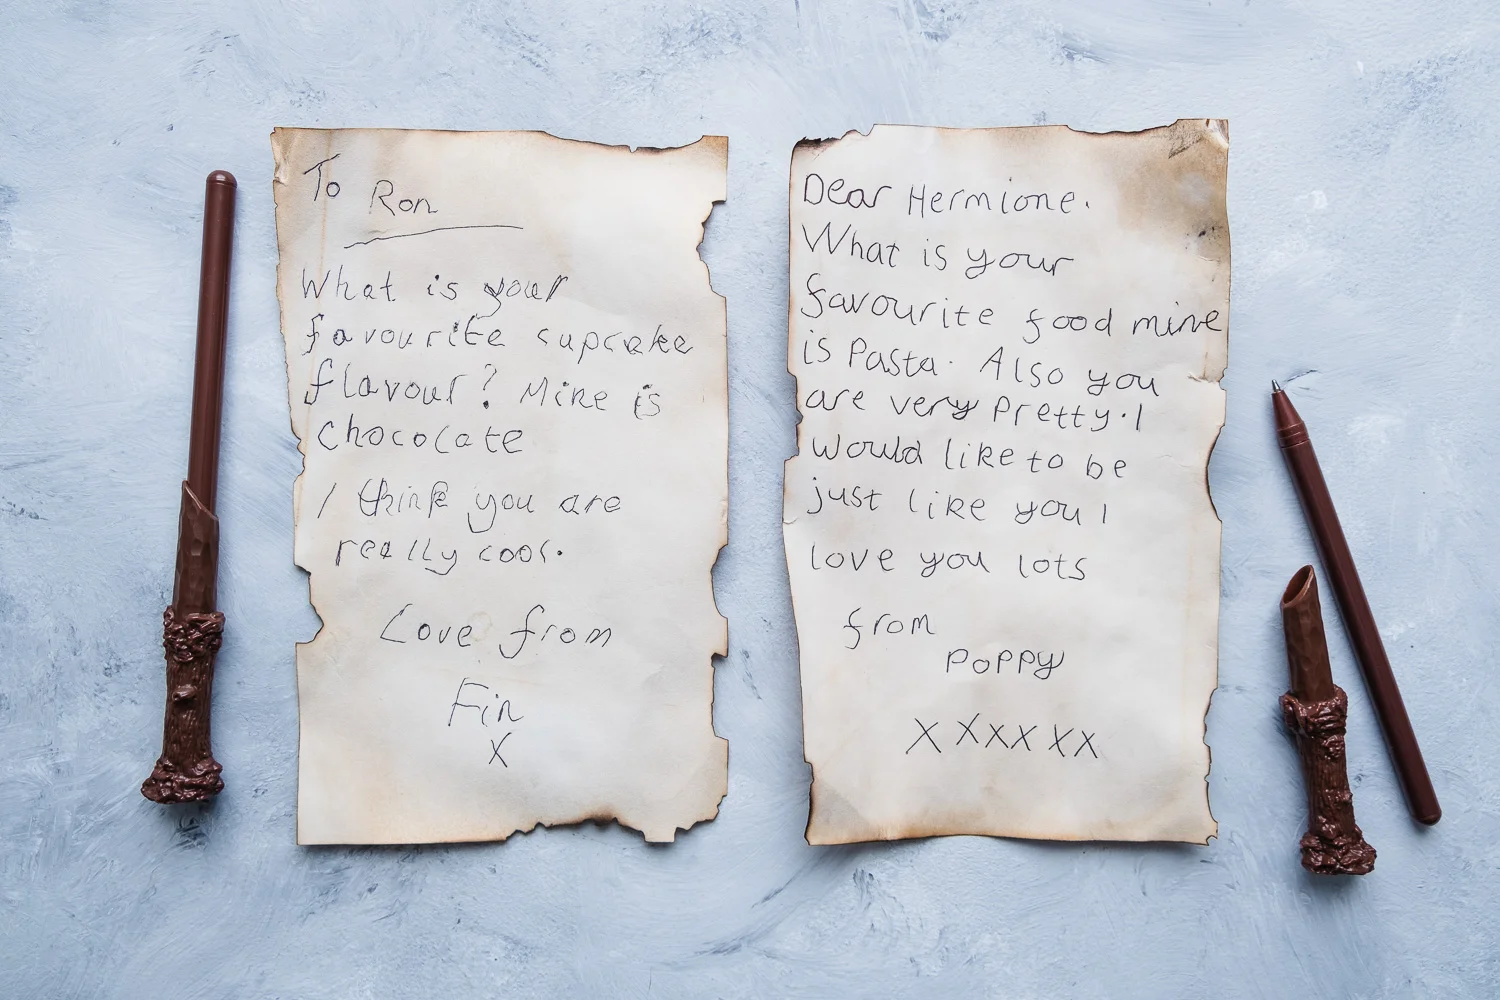 To Ron
What is your
favourite cupcake
flavour? Mine is
chocolate
I think you are
really cool.
Love from
Fin
X
Dear Hermione.
What is your
favourite food mine
is Pasta. Also you
are very Pretty. I
would like to be
just like you I
love you lots
from
Poppy
X XXXX XX